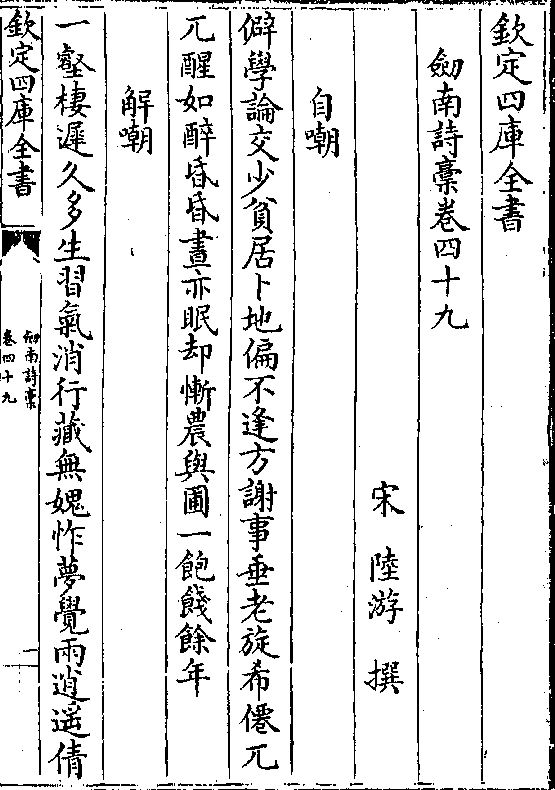 欽定四庫全書
劒南詩藁卷四十九
宋 陸游 撰
自嘲
僻學論交少貧居卜地偏不逢方謝事垂老旋希僊兀
兀醒如醉昏昏晝亦眠却慚農與圃一飽餞餘年
解嘲
一壑棲遲久多生習氣消行藏無媿怍夢覺兩逍遥倩
欽定四庫全書
劒南詩藁
卷四十九
一